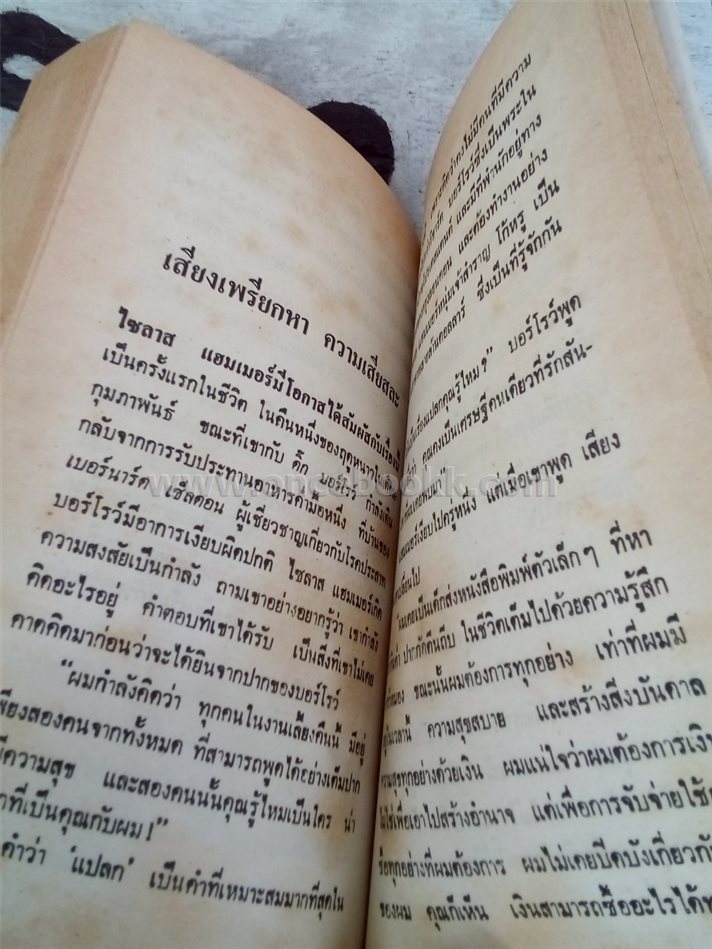 เสียงเพรียกหา ความเสียสละ
ไซลาส แฮมเมอร์มีโอกาสได้สัมผัสกับเรื่องนี้
เป็นครั้งแรกในชีวิต ในคืนหนึ่งของฤดูหนาว
กุมภาพันธ์ ขณะที่เขากับ ดิ๊ก บอร์โรว์ กำลังเดิน
กลับจากการรับประทานอาหารค่ำมื้อหนึ่ง ที่บ้านของ
เบอร์นาร์ด เซ้ลดอน ผู้เชี่ยวชาญเกี่ยวกับโรคประสาท
บอร์โรว์มีอาการเงียบผิดปกติ ไซลาส แฮมเมอร์เกิด
ความสงสัยเป็นกำลัง ถามเขาอย่างอยากรู้ว่า เขากำลัง
คิดอะไรอยู่ คำตอบที่เขาได้รับ เป็นสิ่งที่เขาไม่เคย
คาดคิดมาก่อนว่าจะได้ยินจากปากของบอร์โรว์
"ผมกำลังคิดว่า ทุกคนในงานเลี้ยงคืนนี้ มีอยู่
เพียงสองคนจากทั้งหมด ที่สามารถพูดได้อย่างเต็มปาก
มีความสุข และสองคนนั้นคุณรู้ไหมเป็นใคร น่า
ที่เป็นคุณกับผม!"
คำว่า 'แปลก' เป็นคำที่เหมาะสมมากที่สุดใน
คงไม่มีคนที่มีความ
บอร์โรว์ซึ่งเป็นพระใน
และมีที่พำนักอยู่ทาง
และต้องทำงานอย่าง
หนุ่มเจ้าสำราญ โก้หรู เป็น
ซึ่งเป็นที่รู้จักกัน
เรื่องแปลกคุณรู้ไหม?" บอร์โรว์พูด
คุณคงเป็นเศรษฐีคนเดียวที่รักสัน-
เงียบไปครู่หนึ่ง แต่เมื่อเขาพูด เสียง
เปลี่ยนไป
ผมเคยเป็นเด็กส่งหนังสือพิมพ์ตัวเล็กๆ ที่หา
ปากกัดตีนถีบ ในชีวิตเต็มไปด้วยความรู้สึก
ขณะนั้นผมต้องการทุกอย่าง เท่าที่ผมมี
อยู่ในเวลานี้ ความสุขสบาย และสร้างสิ่งบันดาล
ความสุขทุกอย่างด้วยเงิน ผมแน่ใจว่าผมต้องการเงิน
ไม่ใช่เพื่อเอาไปสร้างอำนาจ แต่เพื่อการจับจ่ายใช้
ซื้อทุกอย่างที่ผมต้องการ ผมไม่เคยปิดบังเกี่ยวกับ
ของผม คุณก็เห็น เงินสามารถซื้ออะไรได้